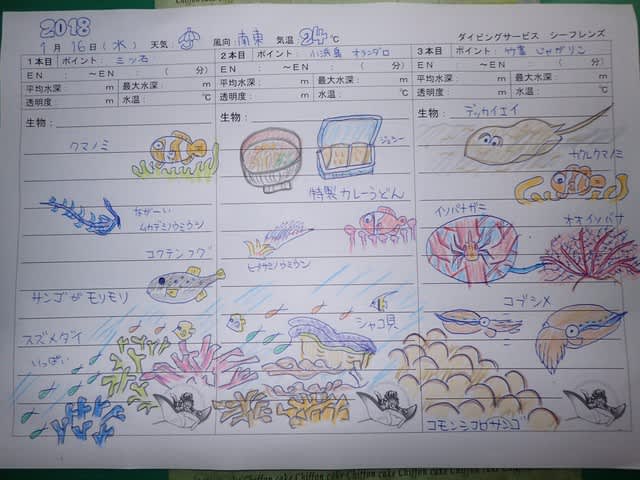 Chiffon cake
2018
1月16日(水) 天気: 風向: 南東 気温: 24℃
ダイビングサービス シーフレンズ
1本目 ポイント: 三ツ石
EN : ～EN : ( 分)
平均水深: m 最大水深: m
透明度: m 水温: ℃
生物:
クマノミ
ながーい
ムカデミノウミウシ
コクテンフグ
サンゴがモリモリ
スズメダイ
いっぱい
2本目 ポイント: 小浜島
EN : ～EN : ( 分)
平均水深: m 最大水深: m
透明度: m 水温: ℃
生物:
ジューシー
特製カレーうどん
シャコ貝
3本目 ポイント: 竹富
EN : ～EN : ( 分)
平均水深: m 最大水深: m
透明度: m 水温: ℃
生物:
デッカイエイ
カクレクマノミ
イソバナガニ
オオイソバナ
コブシメ
コモンシコロサンゴ
Chiffon cake Chiffon cake Chiffon cake Chiffon cake Chiffon cake